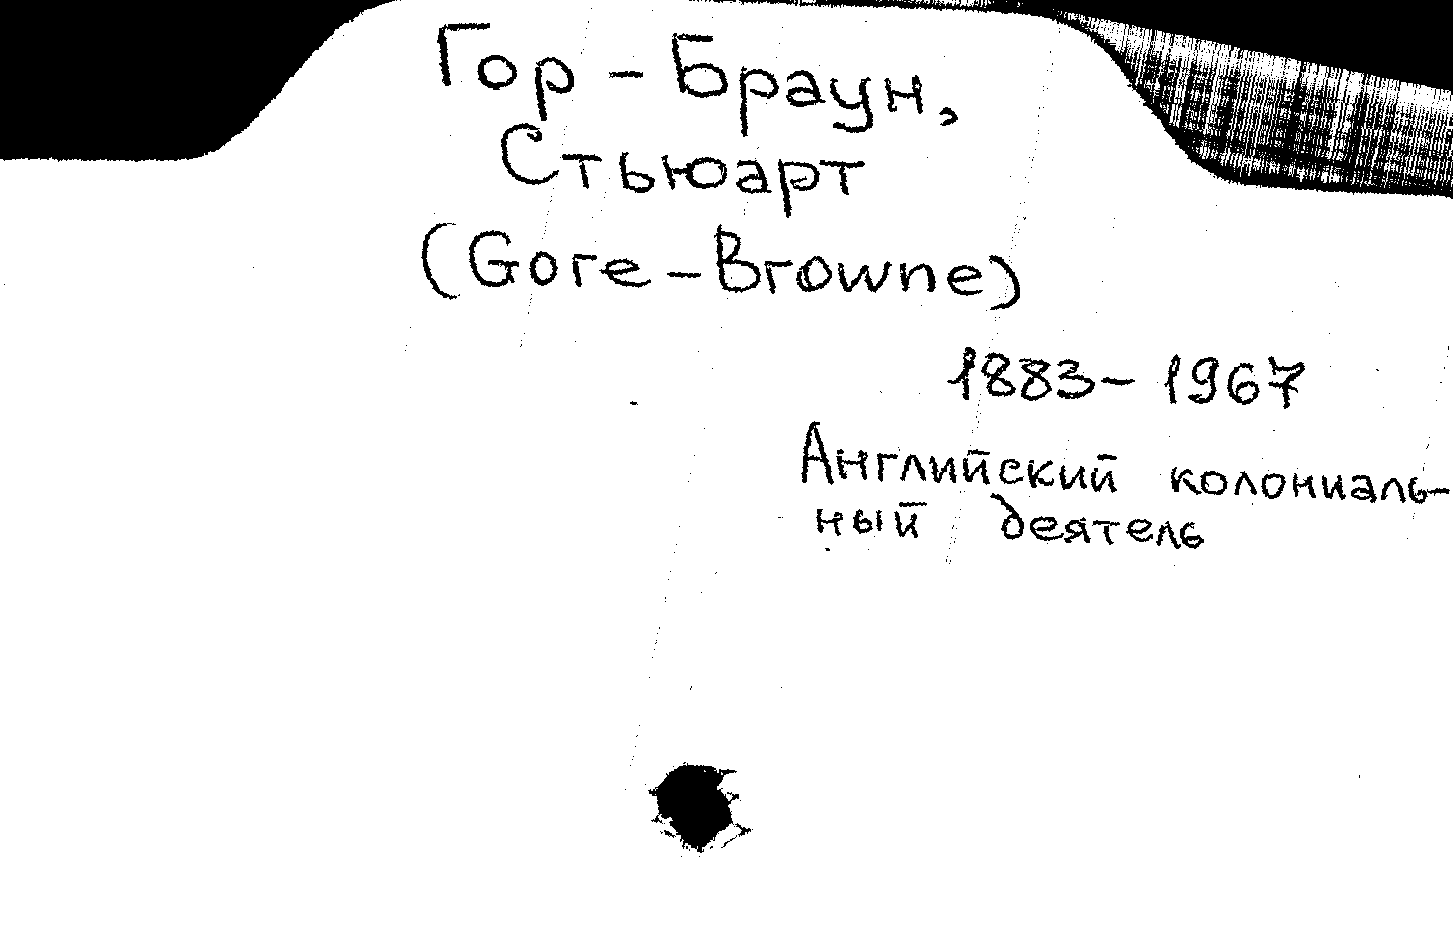 Гор-Браун,
Стьюарт
(Gore-Browne)
1883-1967
Английский колониаль-
ный деятель